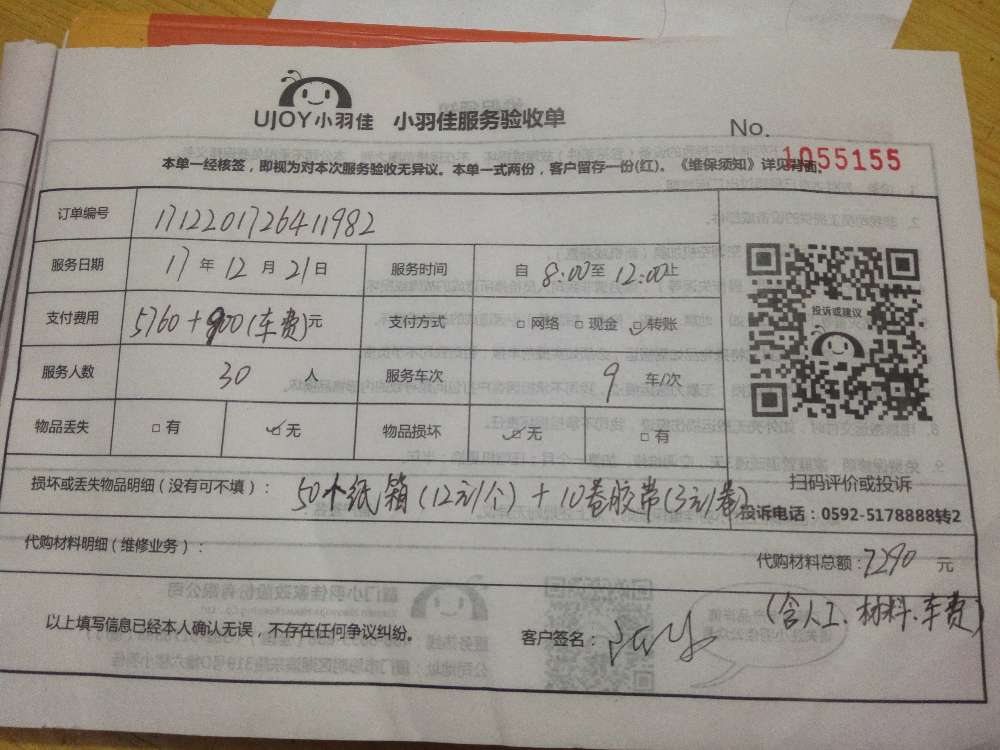 UJOY小羽佳 小羽佳服务验收单
No. 1055155
本单一经核签，即视为对本次服务验收无异议。本单一式两份，客户留存一份(红)。《维保须知》详见背面。
订单编号 171220172641 1982
服务日期 17年12月21日 服务时间 自8:00至12:00止
支付费用 5760+900(车费)元 支付方式 □网络 □现金 ☑转账
投诉或建议
服务人数 30人 服务车次 9车/次
物品丢失 □有 ☑无 物品损坏 ☑无 □有
扫码评价或投诉
损坏或丢失物品明细（没有可不填）： 50个纸箱(12元/个)+10卷胶带(3元/卷)
投诉电话：0592-5178888转2
代购材料明细（维修业务）： 代购材料总额：7290元
(含人工、材料、车费)
以上填写信息已经本人确认无误，不存在任何争议纠纷。 客户签名：